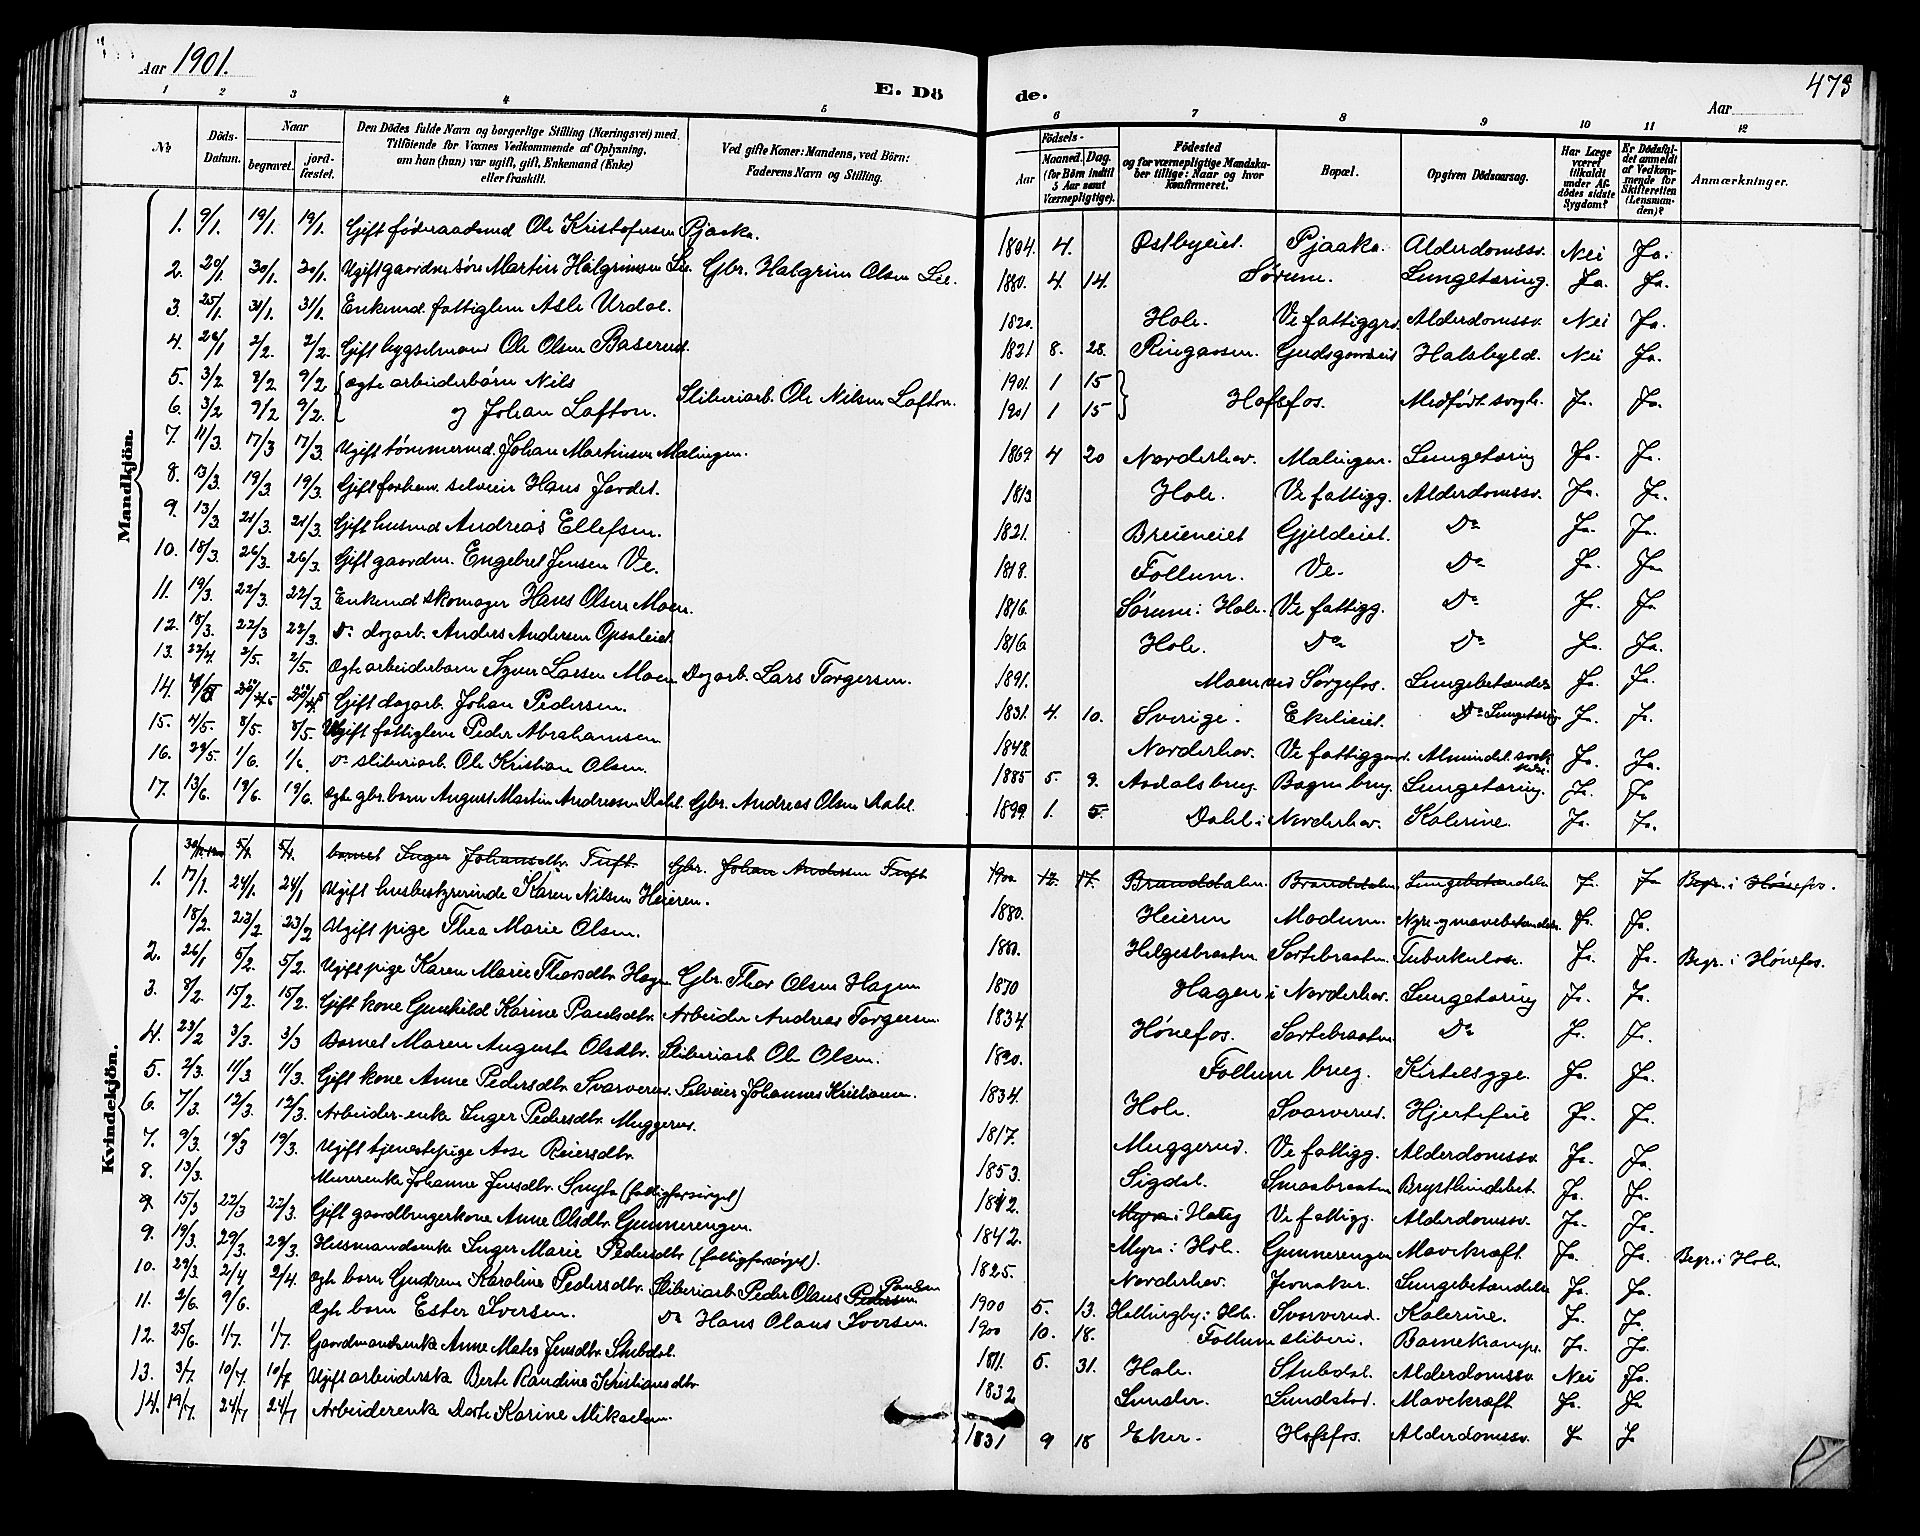 Aar 1901.
E. Dö
de.
Aar
473
1 2 3 4 5 6 7 8 9 10 11 12
No
Döds-Datum.
Naar
begravet.
jord-fæstet.
Den Dödes fulde Navn og borgerlige Stilling (Næringsvei) med
Tilföiende for Voxnes Vedkommende af Oplysning,
om hun (han) var ugift, gift, Enkemand (Enke)
eller fraskilt.
Ved gifte Koner: Mandens, ved Börn:
Faderens Navn og Stilling.
Födsels-
Aar
Maaned. Dag.
(for Börn indtil
5 Aar samt
Værnepligtige).
Födested
og for værnepligtige Mandska-
ber tillige: Naar og hvor
konfirmeret.
Bopæl.
Opgiven Dödsaarsag.
Har Læge
været
tilkaldt
under Af-
dödes sidste
Sygdom?
Er Dödsfal-
det anmeldt
af Vedkom-
mende for
Skifteretten
(Lensman-
den)?
Anmærkninger.
Mandkjön.
1. 9/1. 19/1. 19/1. Gift föderaadsmd Ole Kristofersen Pjaaka. 1804. 4. Østbyeiet. Pjaaka. Alderdomssv. Nei Ja.
2. 20/1. 30/1. 30/1. Ugift gaardmr.søn Martin Halgrimsen Lie. Gbr. Halgrim Olsen Lie. 1880. 4. 14. Sørum. Lungetæring. Ja. Ja.
3. 25/1. 31/1. 31/1. Enkemd. fattiglem Asle Urdal. 1820. Hole. Ve fattiggrd. Alderdomssv. Nei Ja.
4. 2/2. 2/2. Gift bygselmand Ole Olsen Baserud. 1821 8. 28. Ringaasen. Gudsgaardseie Halsbyld. Nei Ja.
5. 3/2 8/2 9/2 ægte arbeiderbørn Nils 1901. 1 15
6. 3/2 9/2 9/2. og Johan Lafton. Sliberiarb. Ole Nilsen Lafton. 1901 1 15 Hofsfos. Medfødt svagh. Ja. Ja.
7. 11/3. 17/3 17/3. Ugift tømmermd. Johan Martinsen Malingen. 1869. 4 20 Norderhov. Malingen. Lungetæring Ja. Ja.
8. 13/3. 19/3 19/3. Gift forhenv. selveier Hans Jordet. 1813 Hole. Ve fattigg. Alderdomssv. Ja. Ja.
9. 13/3 21/3. 21/3. Gift husmd Andreas Ellefsen. 1821. Breieneiet Gjeldeiet. Do Ja. Ja.
10. 18/3. 26/3. 26/3. Gift gaardm. Engebret Jensen Ve. 1818. Follum. Ve. Do Ja. Ja
11. 19/3. 22/3. 22/3. Enkemd skomager Hans Olsen Moen. 1816. Sørum i Hole. Ve fattigg. Do Ja. Ja
12. 18/3. 22/3 22/3. Do dagarb. Anders Andersen Opsaleiet. 1816 Hole. Do Do Ja. Ja.
13. 22/4. 2/5. 2/5. Ægte arbeiderbarn Larsen Moen Dagarb. Lars Torgersen. 1891. Moen ved Sørgefos. Lungebetændelse Ja. Ja.
14. Gift dagarb. Johan Pedersen. 1831. 4. 10. Sverige. Ekelieiet. Do Lungetæring Ja. Ja.
15. 4/5. 8/5. 8/5. Ugift fattiglem Peder Abrahamsen 1848. Norderhov. Ve fattiggaard. Almindel. svakhed. Ja. Ja.
16. 29/5. 1/6. 1/6. Do sliberiarb. Ole Kristian Olsen. 1885 5. 9. Aadalsbrug. Bagnbrug. Lungetæring. Ja. Ja
17. 13/6. 19/6. 19/6. Ægte gbr. barn August Martin Andreasen Dahl. Gbr. Andreas Olsen Dahl. 1899. 1. 5. Dahl i Norderhov. Kolerine. Ja. Ja.
Kvindekjön.
barnet Inger Johansdtr. Tuft. Gbr. Johan Andersen Tuft 1900 12. 17. Branddalen. Branddalen. Lungebetændelse Ja. Ja Begr. i Hønefos.
1. 17/1. 24/1. 24/1 Ugift husbestyrerinde Karen Nilsen Heieren. 1880. Heieren Modum. Nyre- og mavebetændelse Ja. Ja.
18/2. 23/2 23/2 Ugift pige Thea Marie Olsen. 1880. Helgesbraaten Sortebraaten Tuberkulose Ja. Ja. Begr. i Hønefos.
2. 26/1 5/2. 5/2. Ugift pige Karen Marie Thorsdtr. Hagen Gbr. Thor Olsen Hagen 1870 Hagen i Norderhov. Lungetæring Ja. Ja.
3. 8/2. 15/2. 15/2. Gift kone Gunhild Karine Paulsdtr. Arbeider Andreas Torgersen 1834. Hønefos. Sortebraaten Do Ja. Ja.
4. 23/2 3/3. 3/3 Barnet Maren Augusta Olsdtr. Sliberiarb. Ole Olsen. Follum brug. Kirtelsyge. Ja. Ja.
5. 2/3. 11/3 11/3. Gift kone Anne Pedersdtr Svarverud Selveier Johannes Kristiansen. 1834. Hole. Svarverud. Hjertefeil Ja. Ja.
6. 7/3. 12/3. 12/3. Arbeider-enke Inger Pedersdtr. Muggerud. 1817. Muggerud. Ve fattigg. Alderdomssv. Ja. Ja.
7. 9/3. 19/3 19/3. Ugift tjenestepige Aase Reiersdtr. 1853. Sigdal. Smaabraaten Brysthindebet. Ja. Ja.
8. 13/3. Murerenke Johanne Jensdtr. Smytn (fattigforsørget) 1812. Myra i Hole Ve fattigg. Alderdomssv. Ja. Ja.
9 15/3 22/3 22/3. Gift gaardbrugerkone Anne Olsdtr. Gunnerengen 1842. Myra i Hole. Gunnerengen Mavekræft. Ja. Ja. Begr. i Hole.
9. 19/3. 29/3. 29/3. Husmandsenke Inger Marie Pedersdtr. (fattigforsørget). 1825. Norderhov. Jevnaker. Lungebetændelse Ja. Ja.
10. 29/3 2/4 2/4. Ægte barn Gudrun Karoline Pedersdtr. Sliberiarb. Peder Olaus Pedersen Paulsen 1900 5. 13. Hallingby i Hole. Svarverud. Kolerine. Ja. Ja.
11. 2/6. 9/6. Ægte barn Ester Iversen. Do Hans Olaus Iversen. 1900 10. 18. Follum sliberi. Barnekrampe. Ja. Ja.
12. 25/6. 1/7. 1/7. Gaardmandsenke Anne Matea Jensdtr. Stubdal. 1811. 5. 31. Hole. Stubdal. Alderdomssv. Nei Ja.
13. 3/7. 10/7. 10/7 Ugift arbeiderske Berte Randine Kristiansdtr 1832 Lunder. Lundstad. Mavekræft Ja. Ja
14. 19/7. 24/7 24/7 Arbeiderenke Dorte Karine Mikaelsen. 1831 9 18 Eker. Hofsfos. Alderdomssv. J J